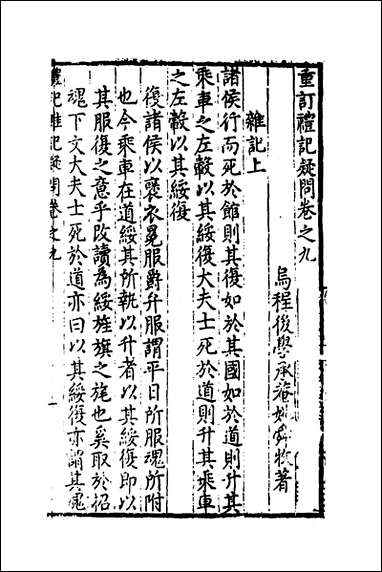 重訂禮記疑問卷之九
烏程後學承菴姚舜牧著
雜記上
諸侯行而死於館則其復如於其國如於道則升其
乘車之左轂以其綏復大夫士死於道則升其乘車
之左轂以其綏復
復諸侯以褒衣冕服爵弁服謂平日所服魂所附
也今乘車在道綏其所執以升者以其綏復即以
其服復之意乎改讀為緌旌旗之旄也奚取於招
魂下文大夫士死於道亦曰以其綏復亦謂其魂
禮記雜記疑問卷之九
一